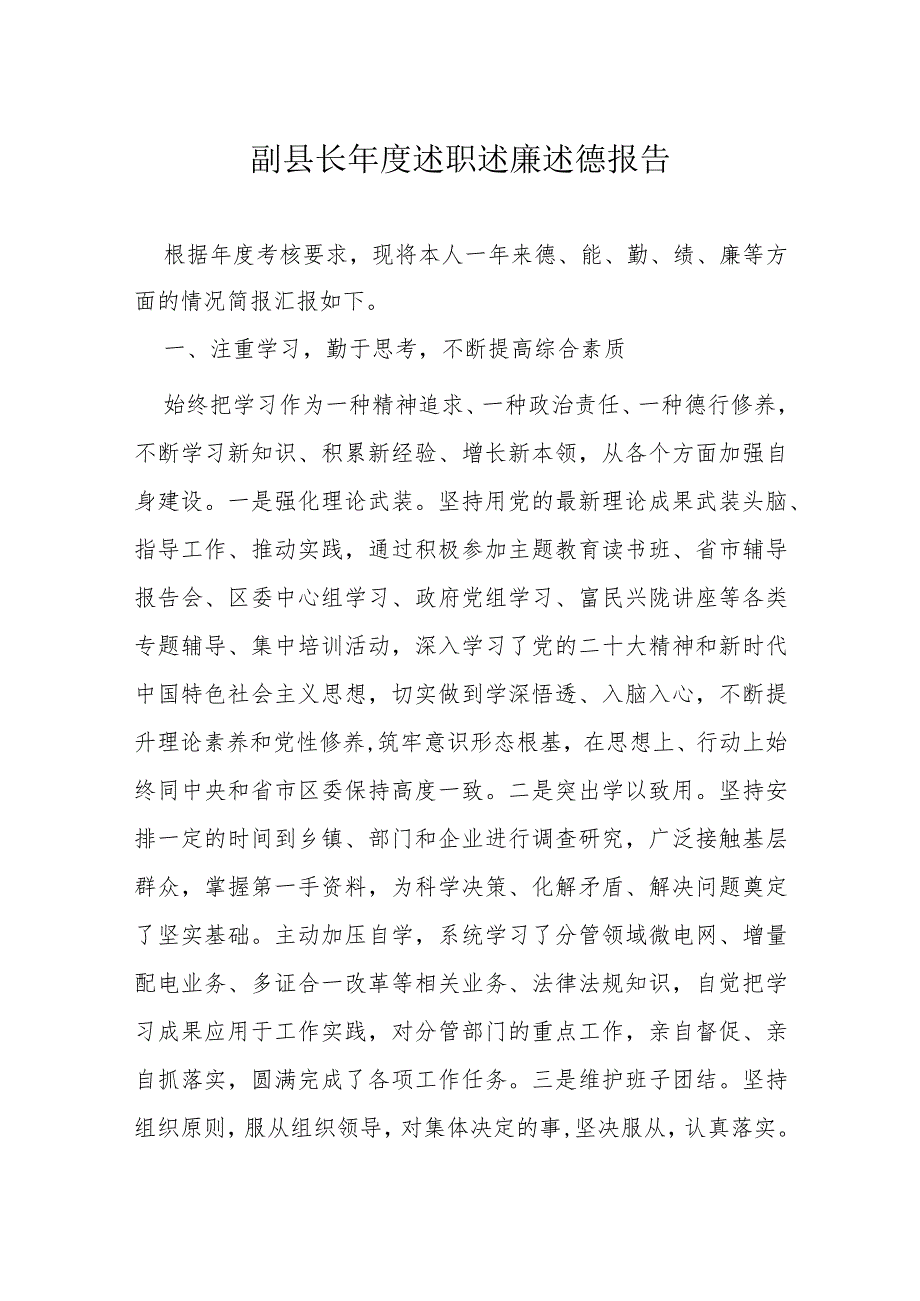 副县长年度述职述廉述德报告
根据年度考核要求，现将本人一年来德、能、勤、绩、廉等方
面的情况简报汇报如下。
一、注重学习，勤于思考，不断提高综合素质
始终把学习作为一种精神追求、一种政治责任、一种德行修养，
不断学习新知识、积累新经验、增长新本领，从各个方面加强自
身建设。一是强化理论武装。坚持用党的最新理论成果武装头脑、
指导工作、推动实践，通过积极参加主题教育读书班、省市辅导
报告会、区委中心组学习、政府党组学习、富民兴陇讲座等各类
专题辅导、集中培训活动，深入学习了党的二十大精神和新时代
中国特色社会主义思想，切实做到学深悟透、入脑入心，不断提
升理论素养和党性修养,筑牢意识形态根基，在思想上、行动上始
终同中央和省市区委保持高度一致。二是突出学以致用。坚持安
排一定的时间到乡镇、部门和企业进行调查研究，广泛接触基层
群众，掌握第一手资料，为科学决策、化解矛盾、解决问题奠定
了坚实基础。主动加压自学，系统学习了分管领域微电网、增量
配电业务、多证合一改革等相关业务、法律法规知识，自觉把学
习成果应用于工作实践，对分管部门的重点工作，亲自督促、亲
自抓落实，圆满完成了各项工作任务。三是维护班子团结。坚持
组织原则，服从组织领导，对集体决定的事,坚决服从，认真落实。